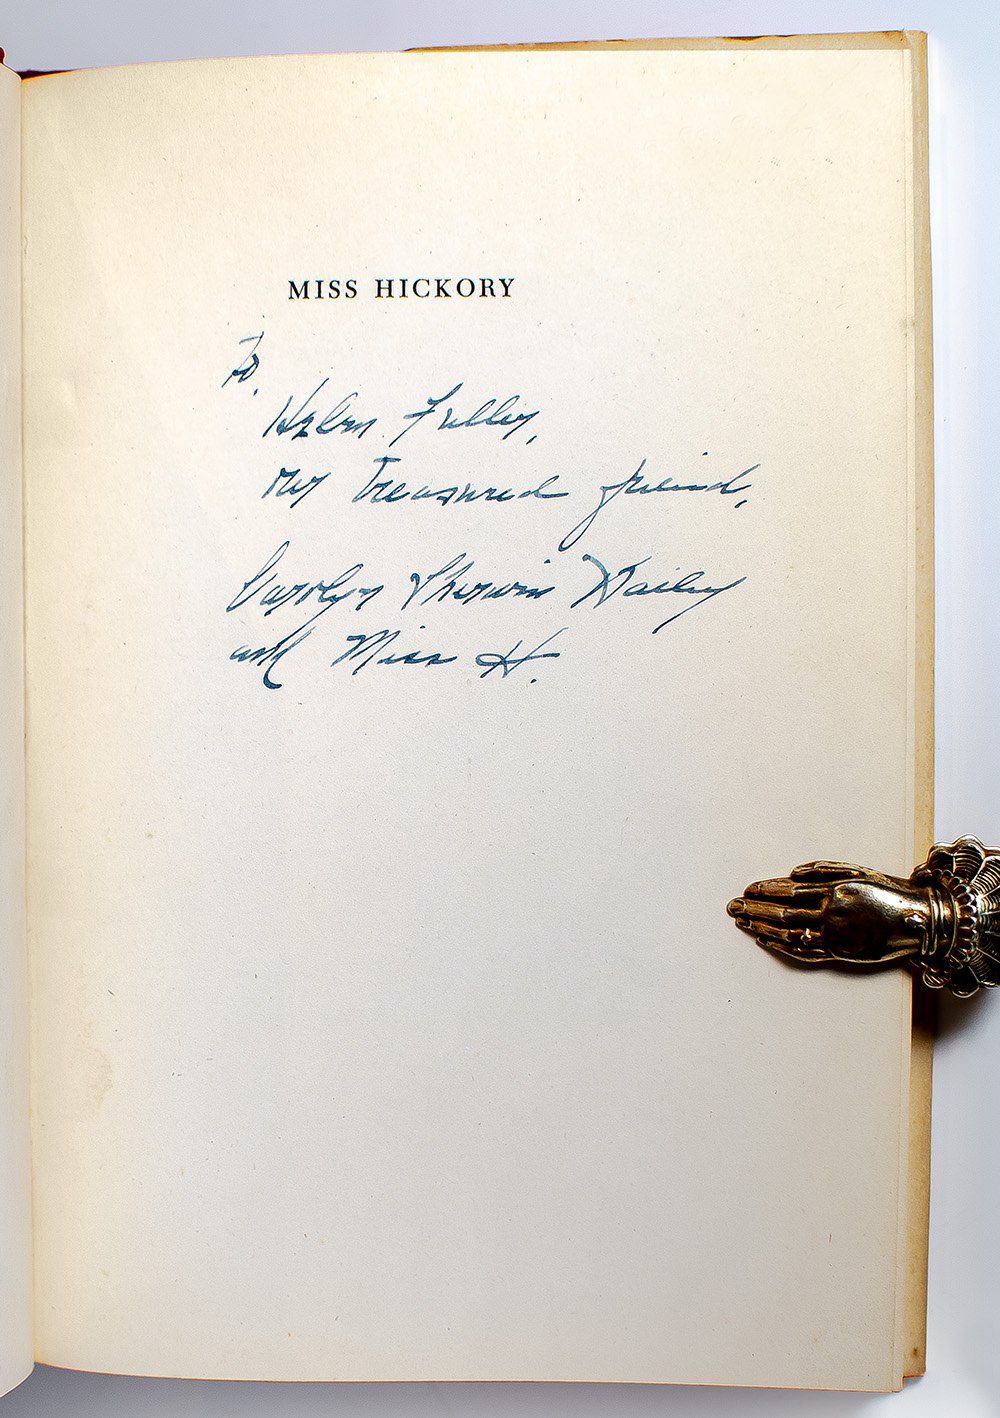 MISS HICKORY
To,
Helen Fuller,
my treasured friend,
Carolyn Sherwin Bailey
and Miss H.